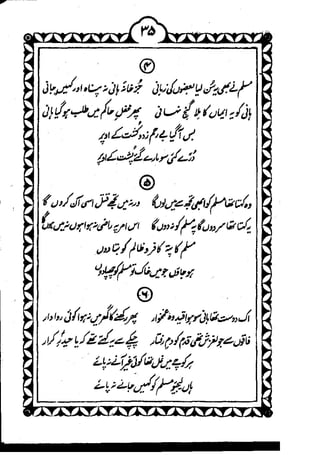 ۳۵
۴
مسلم نے بھی سن لیا بعضوں کی زبانی جز خانہ ہانی نہ پناہ اور کہیں جانی
ہانی کو یہ ایماں کا ملا گنج نہانی پھر محفل حاکم میں طلب ہو گیا ہانی
بس آگیا بے رحم زد و کشت کے اوپر
دُرّے کئی سو مارے گئے پشت کے اوپر
۵
وہ کہتا تھا مسلم کو ابھی تجھ سے میں لوں گا ورنہ میں تجھے قتل اسی آن کروں گا
یہ کہتا تھا سر دوں گا پہ مسلم کو نہ دوں گا اس امر پہ راضی نہ ہوا ہوں نہ میں ہوں گا
مسلم کا پتہ کافر و ظالم کو بتا دوں
ہو جاؤں جو میں خاک تو مسلم کو چھپا دوں
۶
اک دوست تھا ہانی سو ہوا قید وہ غمخوار پھر رکھنے کا گھر میں نہ ہوا کوئی روادار
فاقوں سے جو لغزش تھی قدم کو دم رفتار چپکے سے یہ کہتے تھے کہ یا حیدر کرار
ہر کوچے میں غل تھا کوئی غیر آنے نہ پائے
ہاں لیجیو مسلم کو کہیں جانے نہ پائے